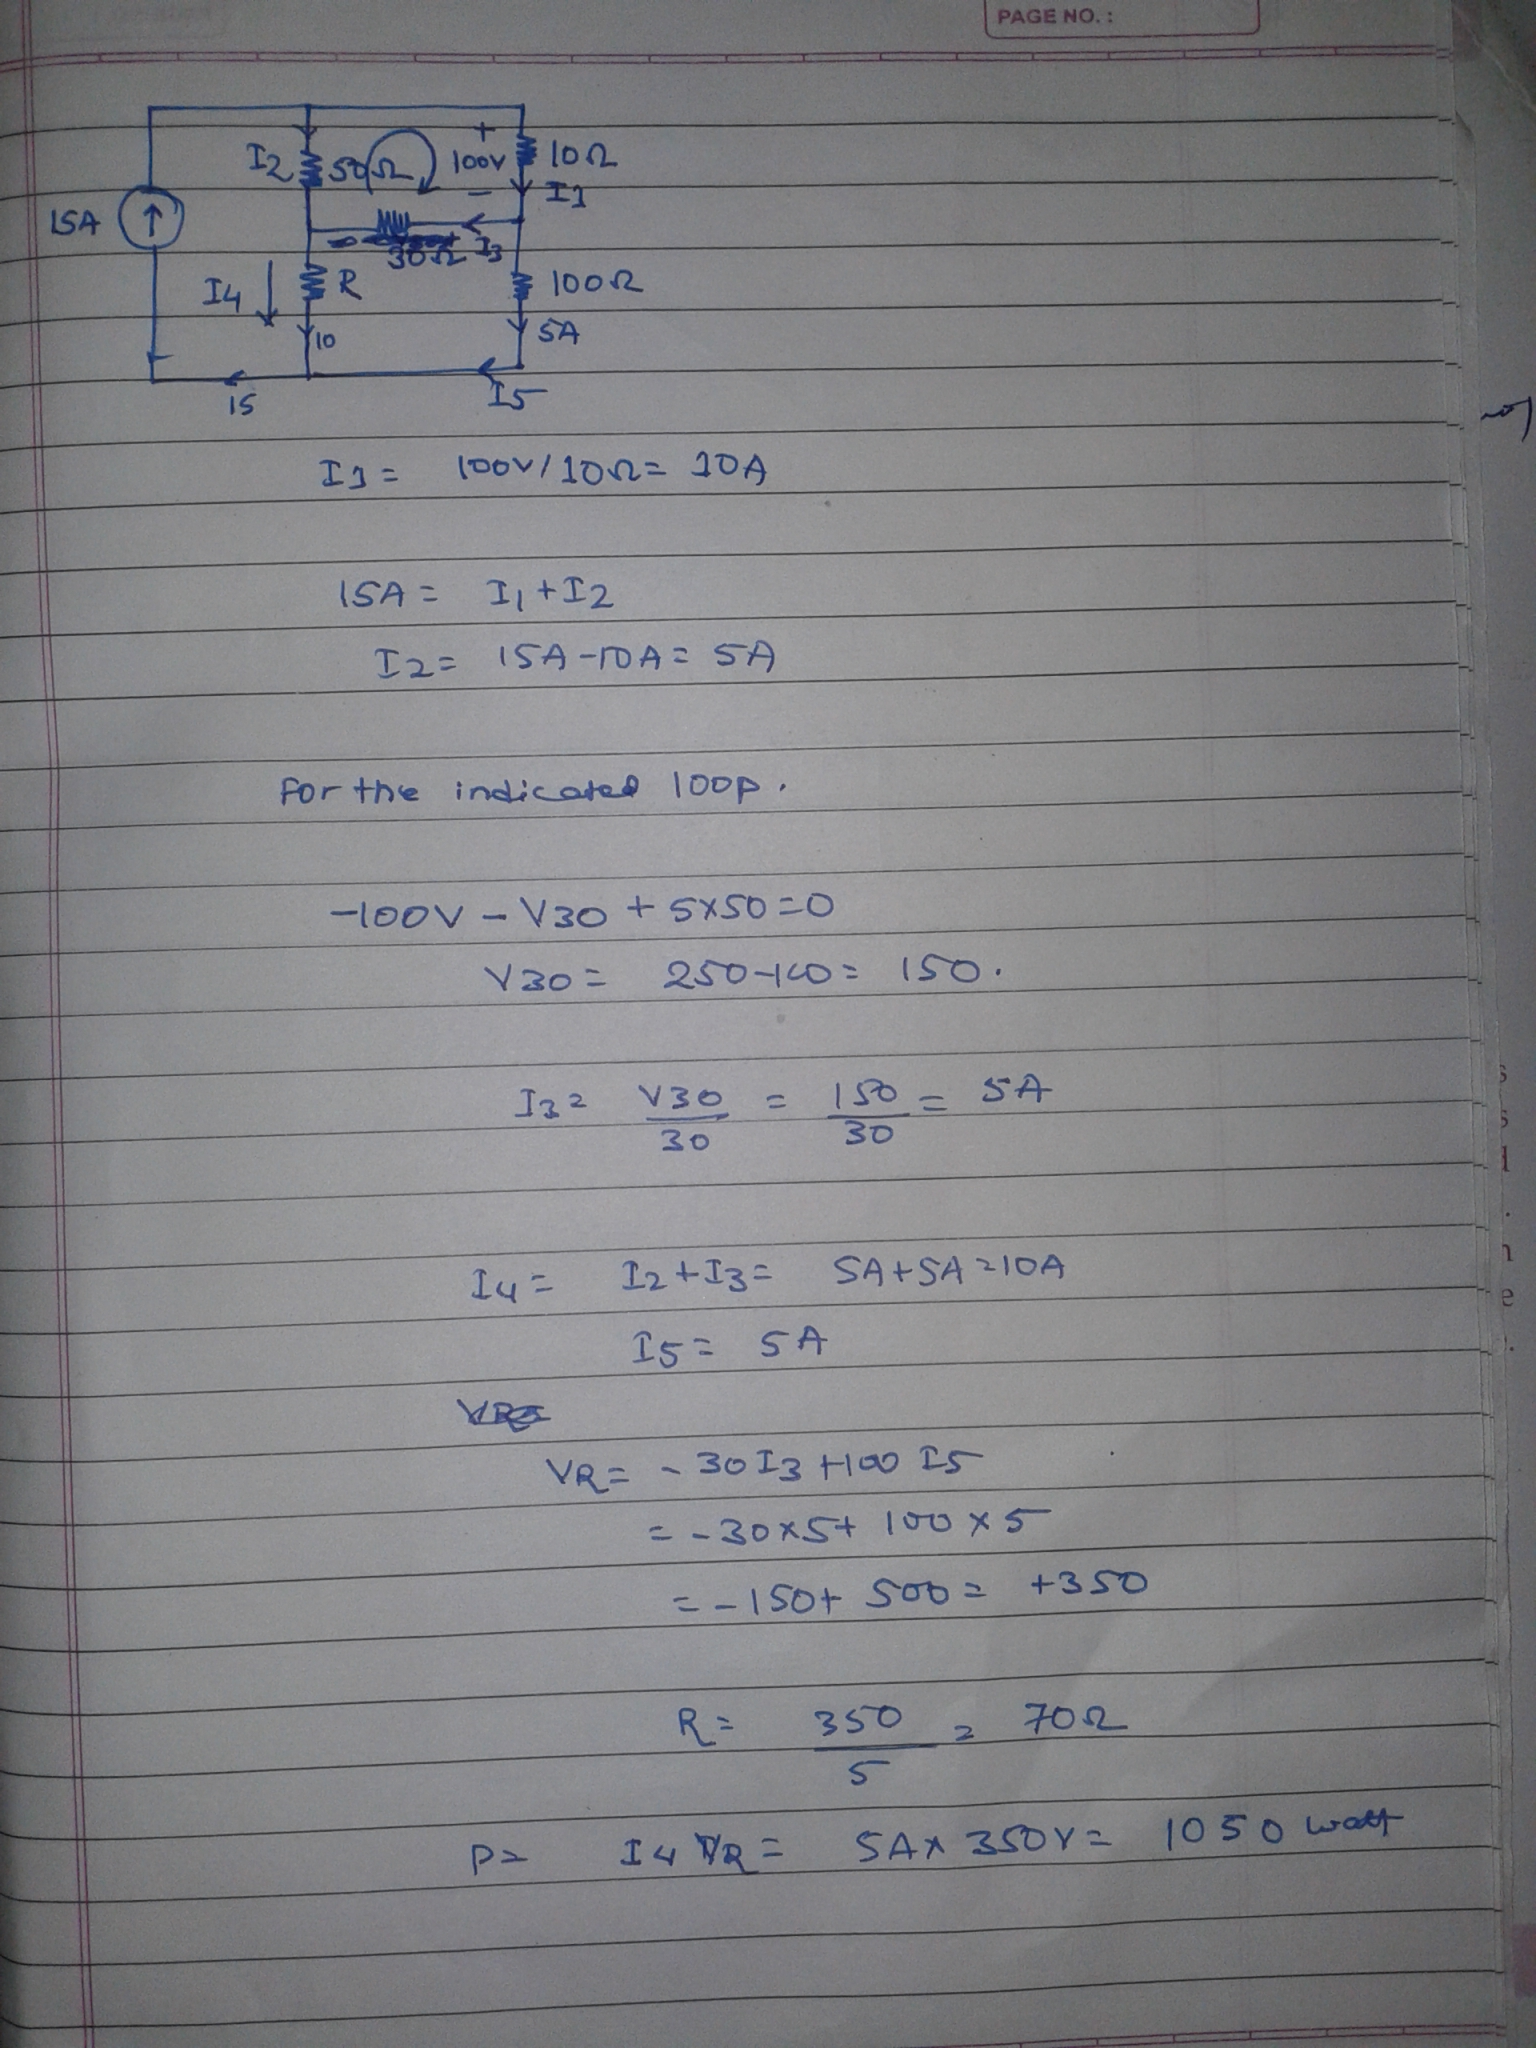 PAGE NO. :
I2 50Ω 100V + - 10Ω
I1
15A
30Ω I3
I4 R 100Ω
10 5A
15 I5
I1 = 100V/10Ω = 10A
15A = I1 + I2
I2 = 15A-10A = 5A
For the indicated loop.
-100V - V30 + 5x50 = 0
V30 = 250-100 = 150.
I3 = V30/30 = 150/30 = 5A
I4 = I2+I3 = 5A+5A = 10A
I5 = 5A
VR = -30I3 +100 I5
= -30x5+ 100x5
= -150+ 500 = +350
R = 350/5 = 70Ω
P = I4 VR = 5Ax 350V = 1050 watt